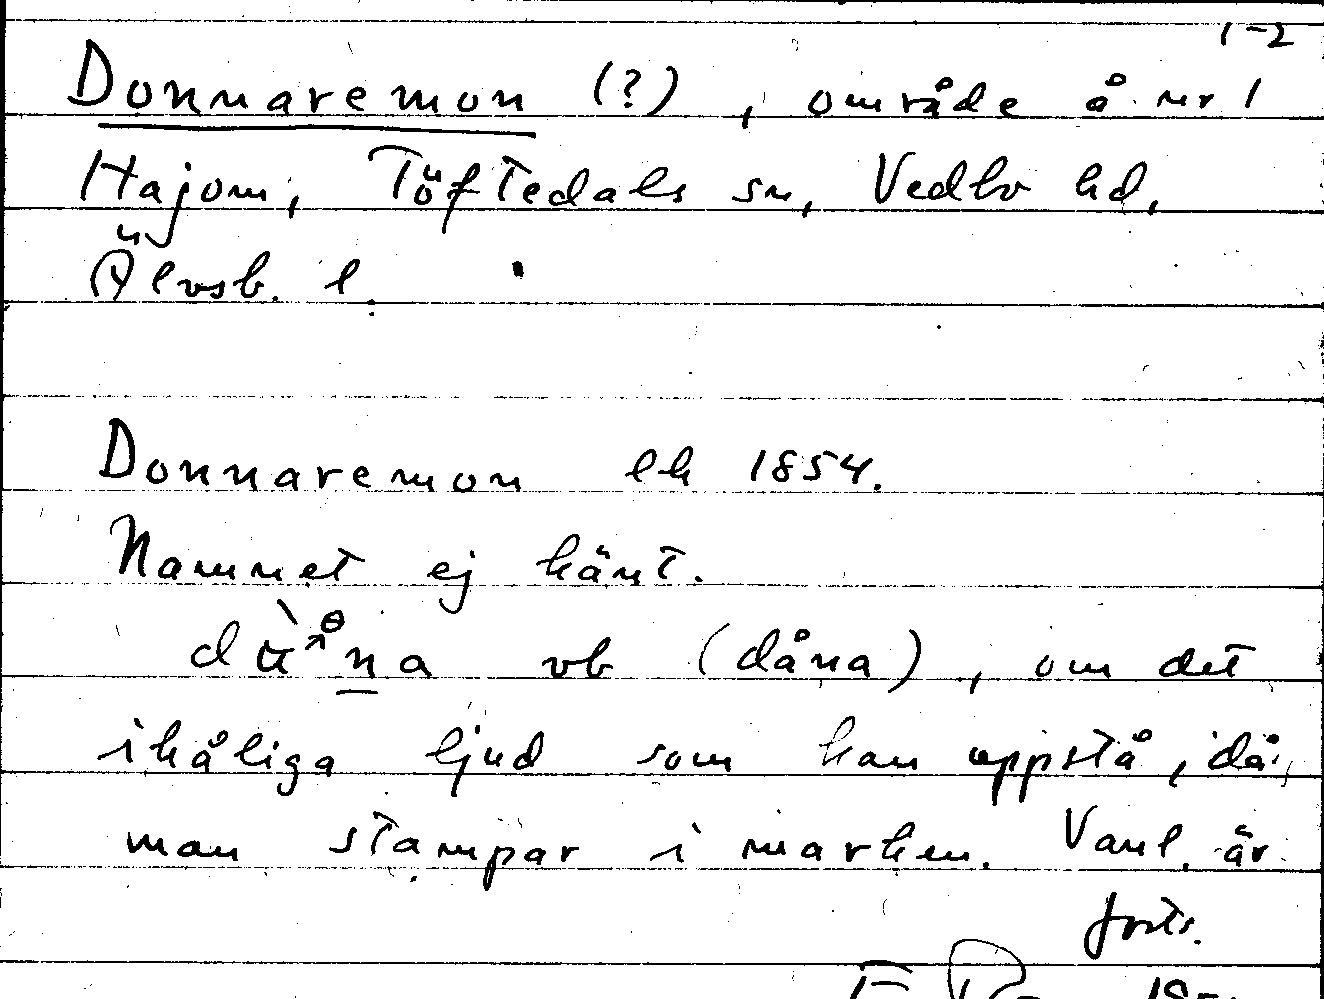 1-2
Donnaremon (?), område å nr 1
Hajom, Töftedals sn, Vedbo hd,
Älvsb. l.
Donnaremon lk 1854.
Namnet ej känt.
vb (dåna), om det
ihåliga ljud som kan uppstå, då
man stampar i marken. Vanl. är
forts.